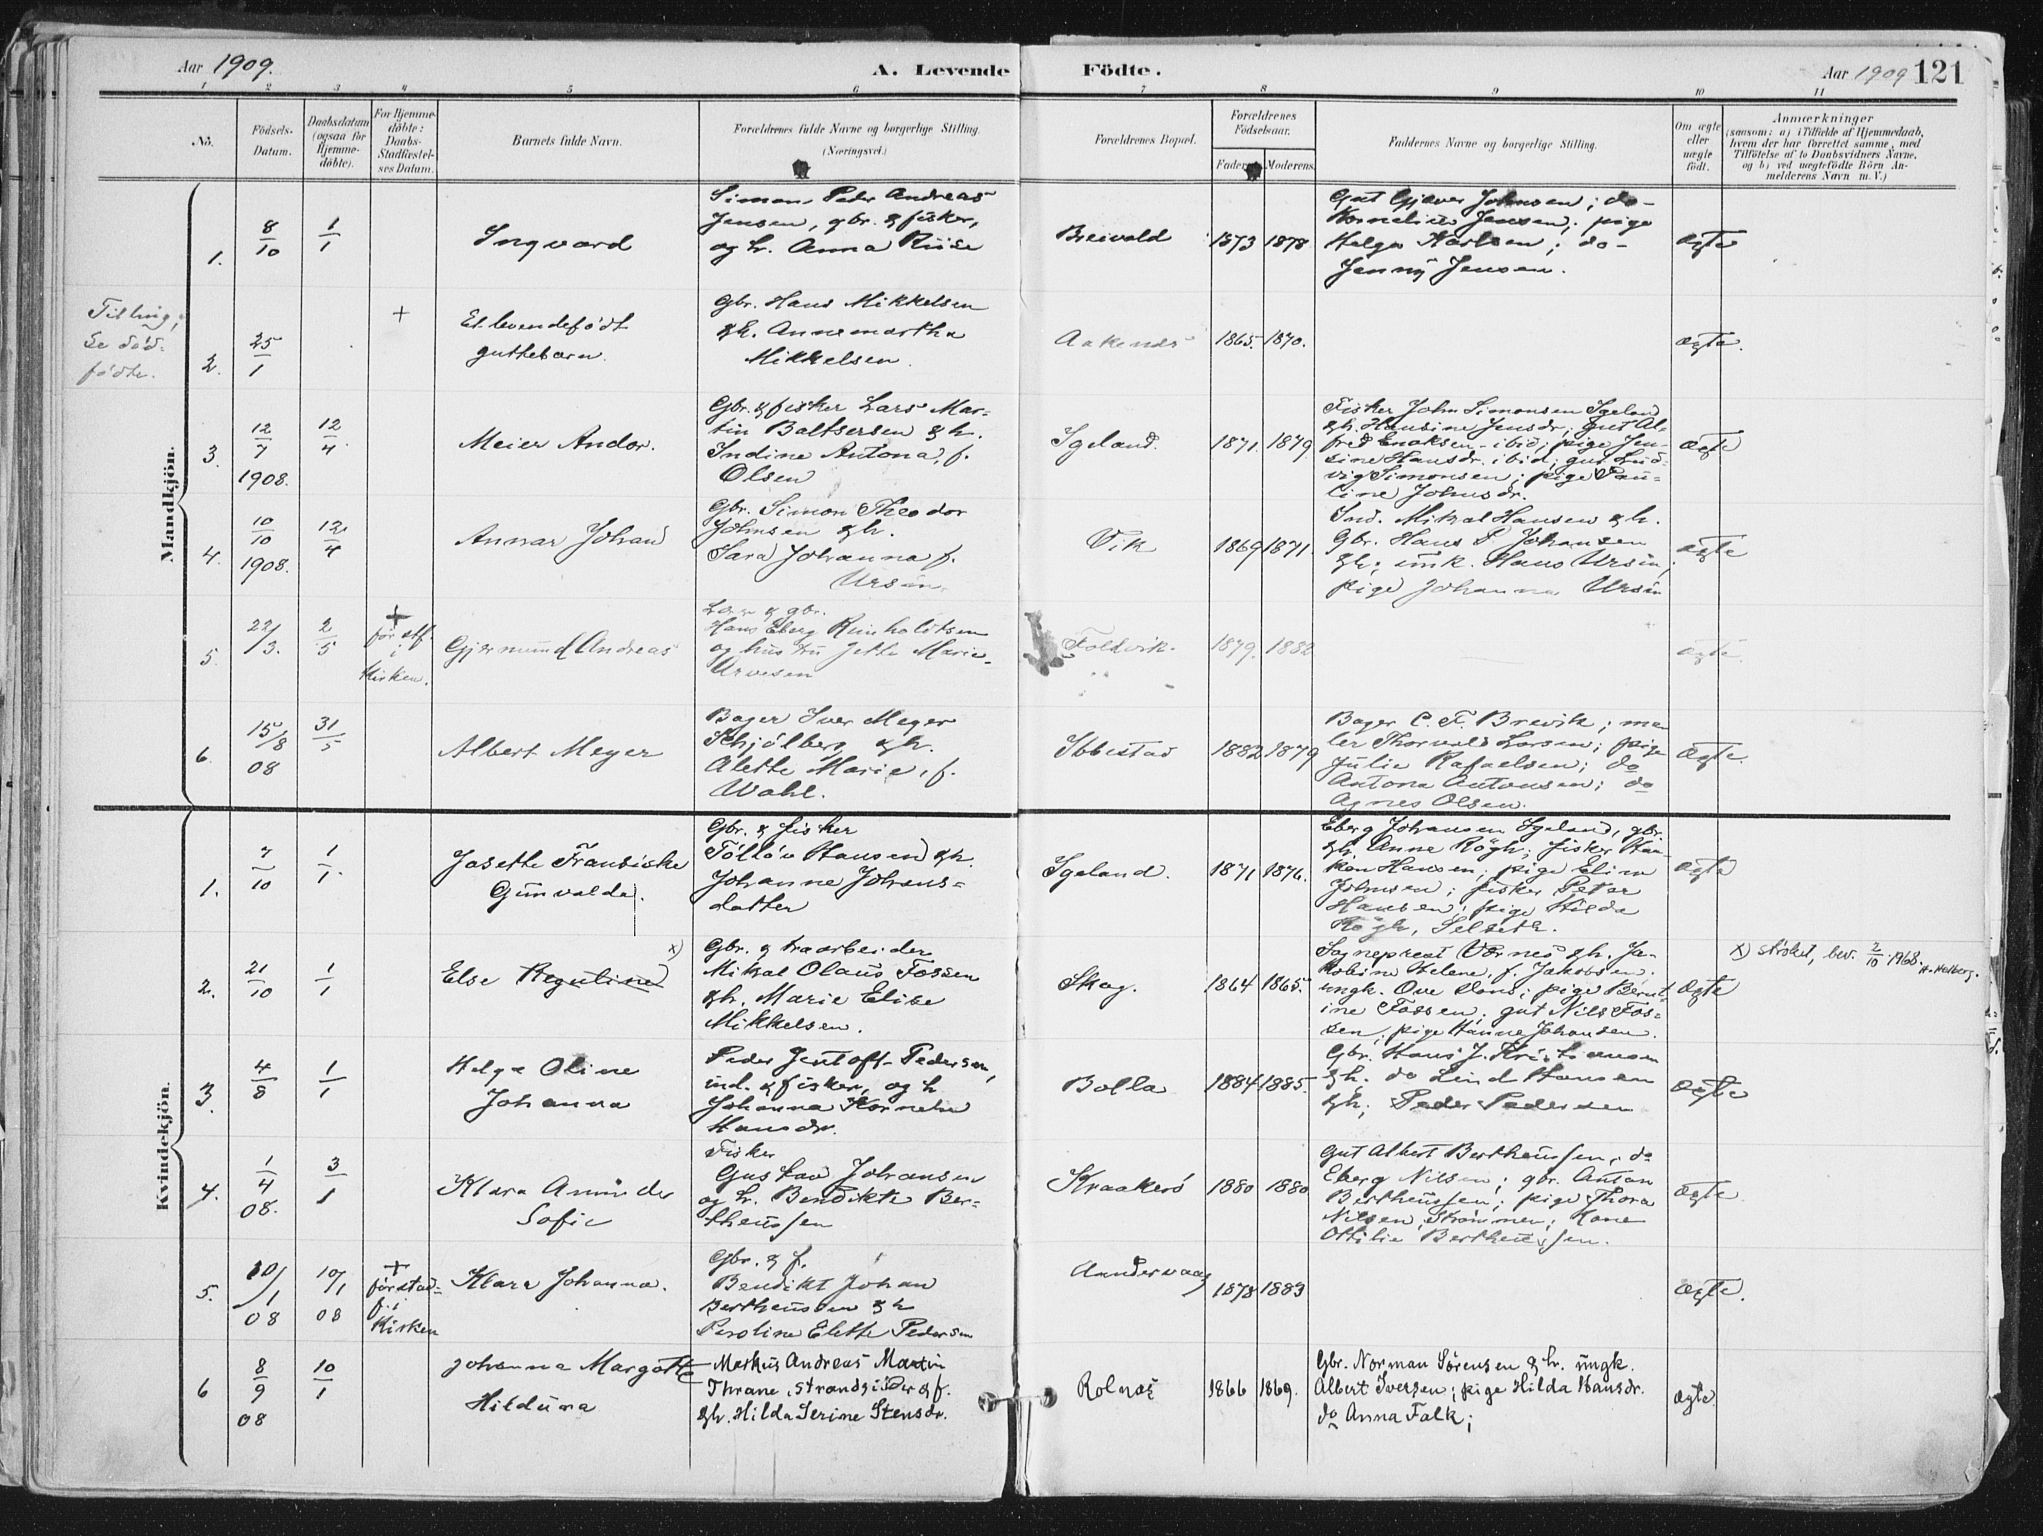 Aar 1909.
A. Levende Födte.
Aar 1909 121
1 2 3 4 5 6 7 8 9 10 11
No.
Födsels-
Datum.
Daabsdatum
(ogsaa for
Hjemme-
döbte).
For Hjemme-
döbte:
Daabs-
Stadfæstel-
ses Datum.
Barnets fulde Navn.
Forældrenes fulde Navne og borgerlige Stilling.
(Næringsvei.)
Forældrenes Bopæl.
Forældrenes
Födselsaar.
Faderens Moderens
Faddernes Navne og borgerlige Stilling.
Om ægte
eller
uægte
födt.
Anmærkninger
(saasom: a) i Tilfælde af Hjemmedaab,
hvem der har forrettet samme, med
Tilföielse af to Daabsvidners Navne,
og b) ved uægtefödte Börn An-
melderens Navn m. V.)
Mandkjön.
1.
8/10
1/1
Ingvard
Simon Peder Andreas
Jensen, gbr. & fisker,
og h. Anna Risse
Breivold
1873 1878
Gut Gjæver Johnsen; do-
Kornelius Jensen; pige
Helga Karlsen; do-
Jenny Jensen.
ægte
Tilling,
se död-
födte.
2.
25/1
+
Et levendefödt
guttebarn.
Gbr. Hans Mikkelsen
& h. Annemartha
Mikkelsen.
Aakenes
1865. 1870.
ægte.
3.
12/7
1908.
12/4.
Meier Andor.
Gbr. & fisker Lars Mar-
tin Baltsersen & h.
Indine Antona, f.
Olsen
Igeland.
1871. 1879
Fisker John Simonsen Igeland
& h. Hansine Jensdr.; gut Al-
fred Enoksen - ibid; pige Jen-
sine Hansdr. ibid; gut Lud-
vig Simonsen; pige Pau-
line Johnsdr.
ægte
4.
10/10
1908.
12/4
Annar Johan
Gbr. Simon Theodor
Johnsen & h.
Sara Johanna f.
Ursin.
Vik
1869 1871.
Ind. Mikal Hansen & h.
Gbr. Hans P. Johansen
& h; ungk. Hans Ursin,
pige Johanna Ursin
ægte
5.
22/3.
2/5
+
för stf.
i
Kirken.
Gjermund Andreas
& gbr.
Hans Eberg Reinholdtsen
og hustru Jette Marie
Arvesen
Foldvik.
1879. 1882
ægte.
6.
15/8
08
31/5
Albert Meyer
Bager Iver Meyer
Schjölberg & h.
Alette Marie, f.
Wahl.
Ibbestad
1882 1879
Bager C. F. Brevik; ma-
ler Thorvald Larsen; pige
Julie Rafaelsen; do
Antona Antonsen; do
Agnes Olsen.
ægte.
Kvindekjön.
1.
7/10
1/1.
Josette Fransiske
Gunvalda.
Gbr. & fisker
Töllöv Hansen & h.
Johanne Johans-
datter
Igeland.
1871 1876.
Eberg Johansen Igeland, gbr.
& h. Anne Rögh; fisker Haa-
kon Hansen; pige Elina
Johnsen; fisker Peter
Hansen; pige Hilda
Rögh, Selseth.
ægte
2.
21/10
1/1
x)
Else Reguline
Gbr. & traarbeider
Mikal Olaus Fossen
& h. Marie Elise
Mikkelsen.
Skog.
1864 1865.
Sogneprest Vornes & h. Ja-
kobine Helene, f. Jakobsen.
ungk. Ove Vons; pige Bernt-
ine Fossen; gut Nils Fos-
sen; pige Hanne Johansen.
ægte
x) ströket, bev. 2/10 1968.
H. Hatberg.
3.
4/8
1/1
Helga Oline
Johanna
Peder Jentoft Pedersen,
ind. & fisker, og h
Johanna Kornelie
Hansdr.
Bolla
1884 1885
Gbr. Hans J. Kristiansen
& h. do Lind Hansen
& h; Peder Pedersen
ægte
4.
1/4
08.
3/1
Klara Aminda
Sofie
Fisker
Gustav Johansen
og h. Bendikte Ber-
theussen
Kraakerö
1880 1880
Gut Albert Bertheussen, do
Eberg Nilsen; gbr. Anton
Bertheussen; pige Thora
Nilsen, Strömmen; Kone
Ottilie Bertheussen.
ægte.
5.
10/1
08
10/1
08
+
för stad-
f. i
Kirken
Klara Johanna.
Gbr. & f.
Bendikt Johan
Bertheussen & h
Peroline Elette Pedersen
Aandervaag
1878 1883
ægte.
6
8/9
08
10/1
Johanna Margotte
Hilduna
Markus Andreas Martin
Thrane, strandsidder & f.
& h. Hilda Serine Stensdr.
Rolnes
1866 1869.
Gbr. Norman Sörensen & h. ungk.
Albert Iversen; pige Hilda Hansdr.
do Anna Falk;
ægte.